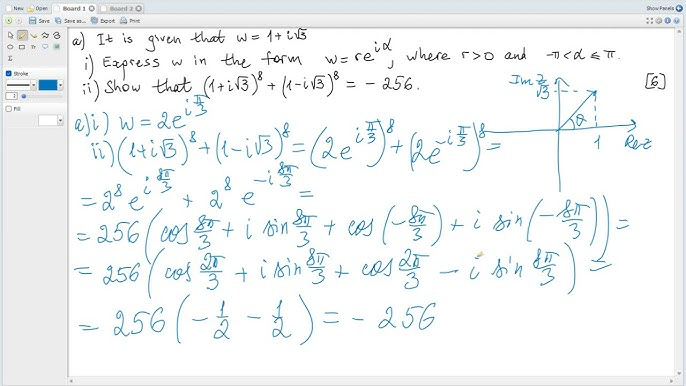 New Open Board 1 Board 2 Show Panels
Save Save as... Export Print
a) It is given that w = 1+i√3
i) Express w in the form w = re^{iα}, where r>0 and -π<α≤π.
ii) Show that (1+i√3)^8 + (1-i√3)^8 = -256. [6]
Stroke
Fill
Im z
√3
θ
1
Re z
a) i) w = 2e^{iπ/3}
ii) (1+i√3)^8 + (1-i√3)^8 = (2e^{iπ/3})^8 + (2e^{-iπ/3})^8 =
= 2^8 e^{i8π/3} + 2^8 e^{-i8π/3} =
= 256(cos 8π/3 + i sin 8π/3 + cos(-8π/3) + i sin(-8π/3)) =
= 256(cos 2π/3 + i sin 8π/3 + cos 2π/3 - i sin 8π/3) =
= 256(-1/2 - 1/2) = -256